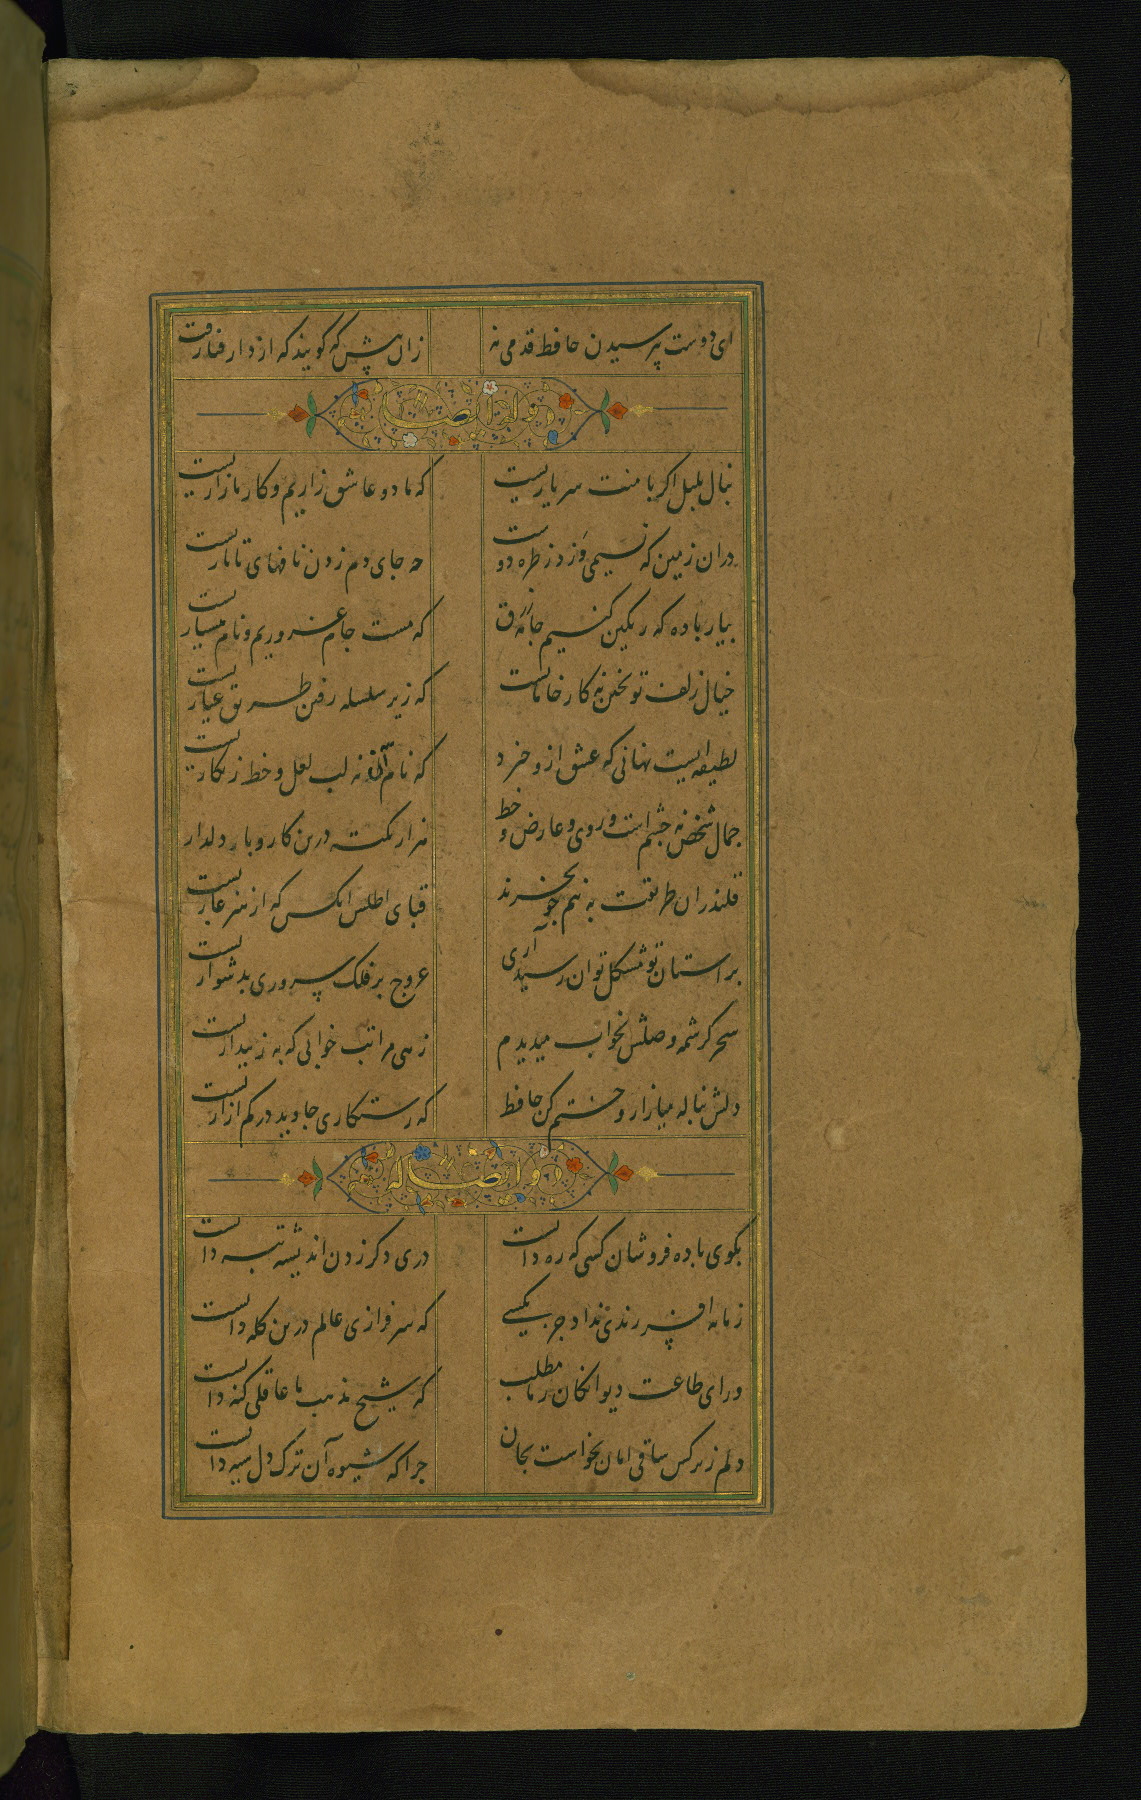 ای دوست پرسیدن حافظ قدمی نه زان پیش که گویند که از دار فنا رفت
وله ایضا
بنال بلبل اگر با منت سر یاریست که ما دو عاشق زاریم و کار ما زاریست
دران زمین که نسیمی وزد ز طره دوست چه جای دم زدن نافهای تاتاریست
بیار باده که رنگین کنیم جامه زرق که مست جام غروریم و نام هشیاریست
خیال زلف تو پختن نه کار خامانست که زیر سلسله رفتن طریق عیاریست
لطیفه ایست نهانی که عشق ازو خیزد که نام آن نه لب لعل و خط زنگاریست
جمال شخص نه چشم است و روی و عارض و خط هزار نکته درین کار و بار دلداریست
قلندران طریقت به نیم جو نخرند قبای اطلس انکس که از هنر عاریست
بر استان تو مشکل توان رسید آری عروج بر فلک سروری بدشواریست
سحر کرشمه وصلش بخواب میدیدم زهی مراتب خوابی که به ز بیداریست
دلش بناله میازار و ختم کن حافظ که رستگاری جاوید در کم ازاریست
وله ایضا
بکوی باده فروشان کسی که ره دانست دری دگر زدن اندیشه تبه دانست
زمانه افسر رندی نداد جز بکسی که سرفرازی عالم درین کله دانست
ورای طاعت دیوانگان ز ما مطلب که شیخ مذهب ما عاقلی گنه دانست
دلم ز نرگس ساقی امان نخواست بجان چرا که شیوه آن ترک دل سیه دانست